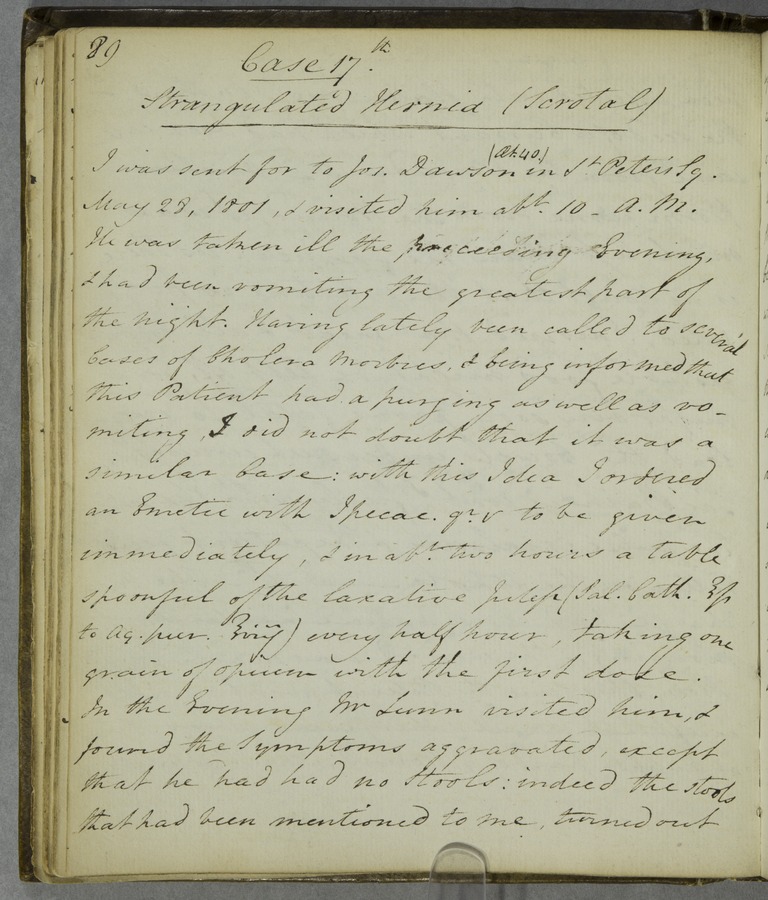 89
Case 17.th
Strangulated Hernia (Scrotal)
(Æt. 40.)
I was sent for to Jos. Dawson in St Peter's Sq.
May 28, 1801, & visited him abt. 10 - A. M.
He was taken ill the preceeding Evening,
& had been vomiting the greatest part of
the night. Having lately been called to several
Cases of Cholera Morbus, & being informed that
this Patient had a purging as well as vo-
miting, I did not doubt that it was a
similar Case: with this Idea I ordered
an Emetic with Ipecac. gr. v to be given
immediately, & in abt. two hours a table
spoonful of the laxative Julep (Sal. Cath. ℥fs
to Aq. pur. ℥viij) every half hour, taking one
grain of opium with the first dose.
In the Evening Mr Lunn visited him, &
found the Symptoms aggravated, except
that he had had no Stools: indeed the stools
that had been mentioned to me, turned out